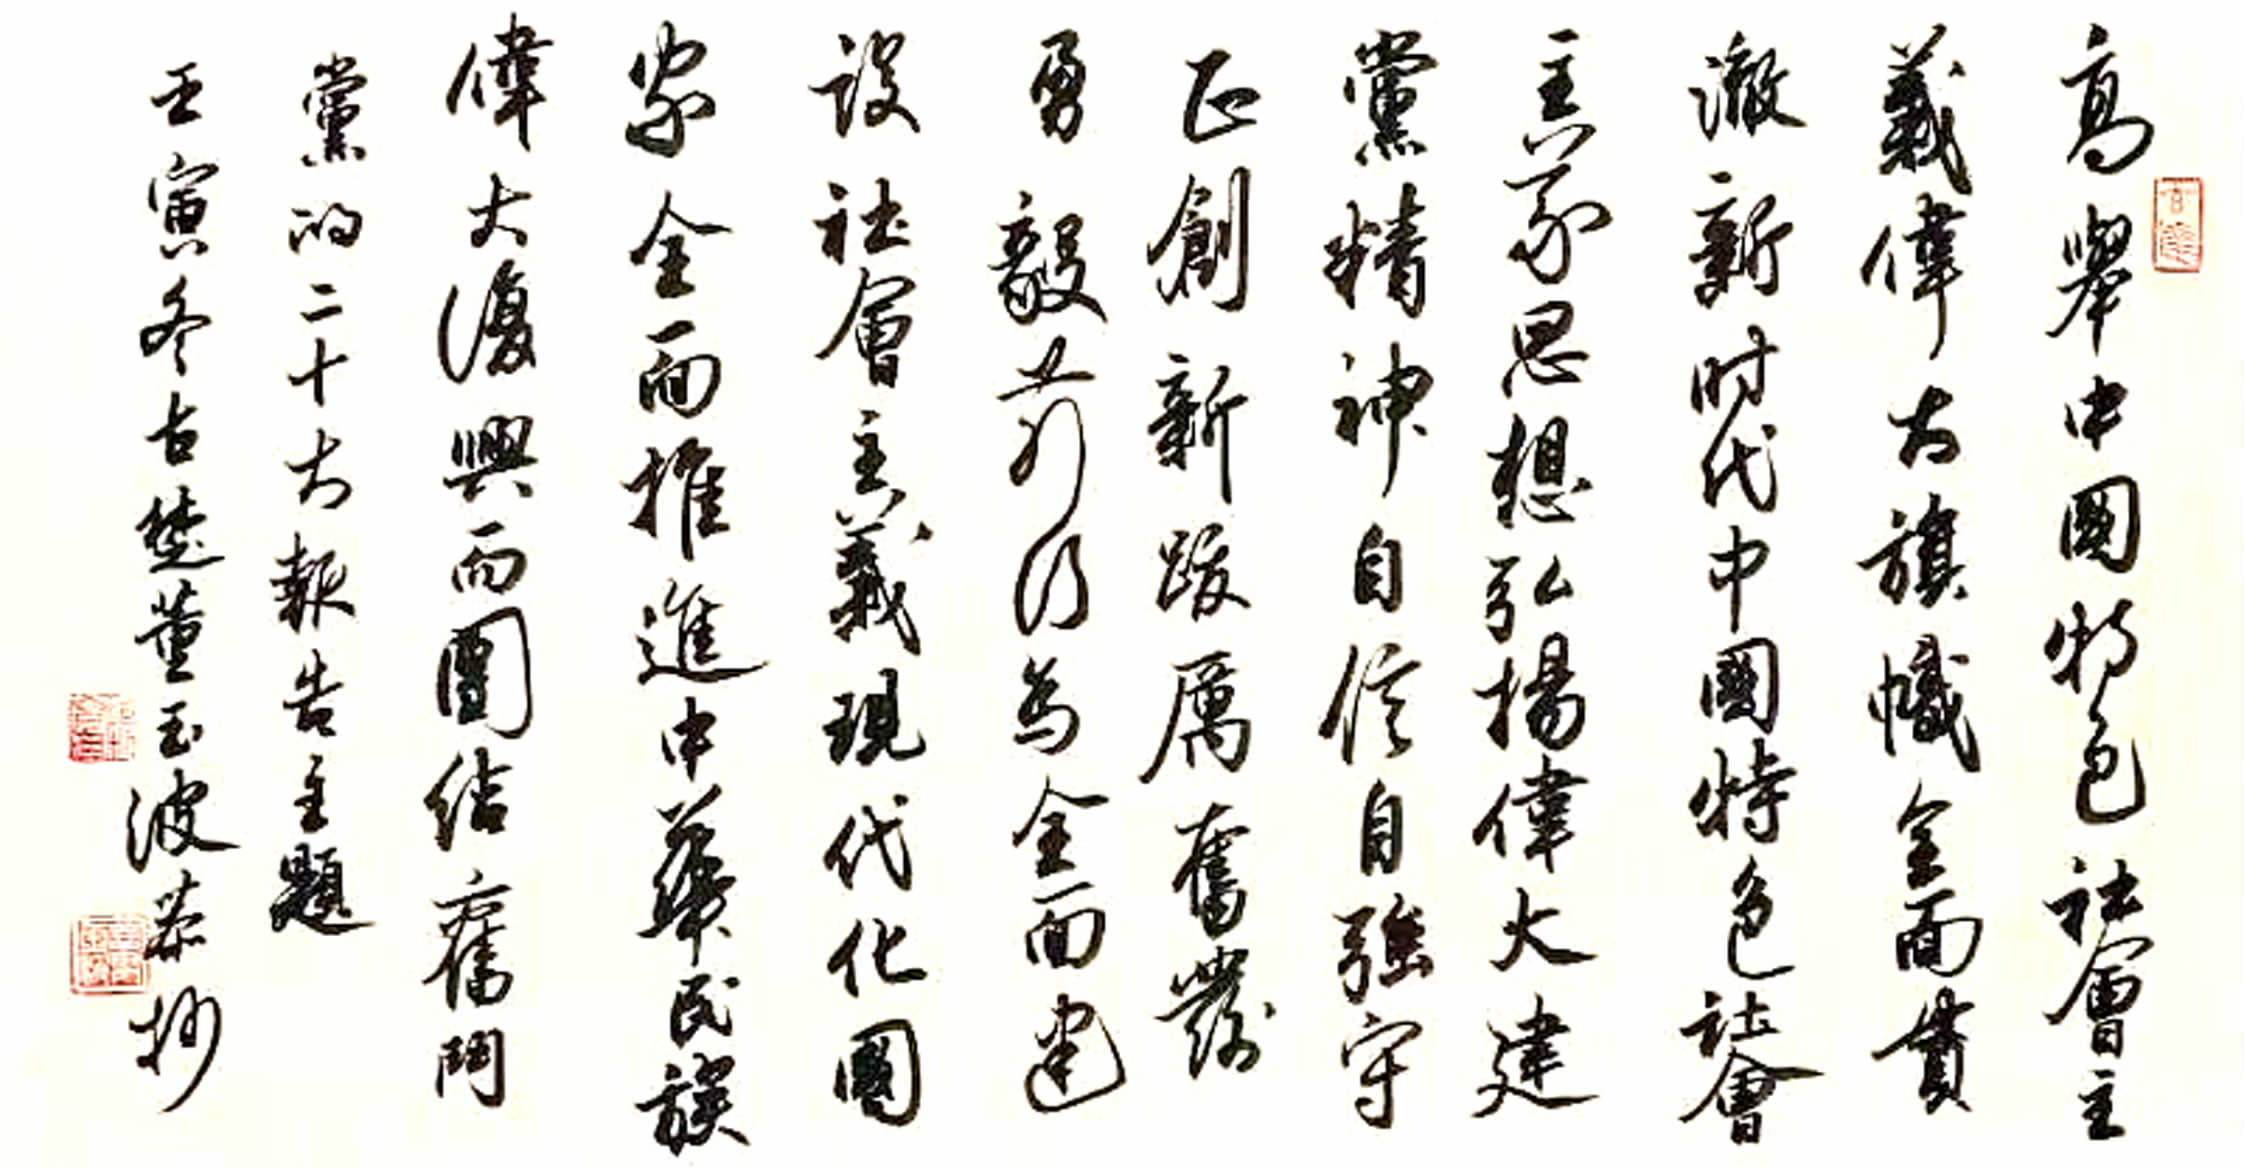 高舉中國特色社會主
義偉大旗幟全面貫
澈新时代中國特色社會
主義思想弘揚偉大建
黨精神自信自強守
正創新踔厲奮發
勇毅前行為全面建
設社會主義現代化國
家全面推進中華民族
偉大復興而團結奮鬥
黨的二十大報告主題
壬寅冬古楚董玉波恭抄